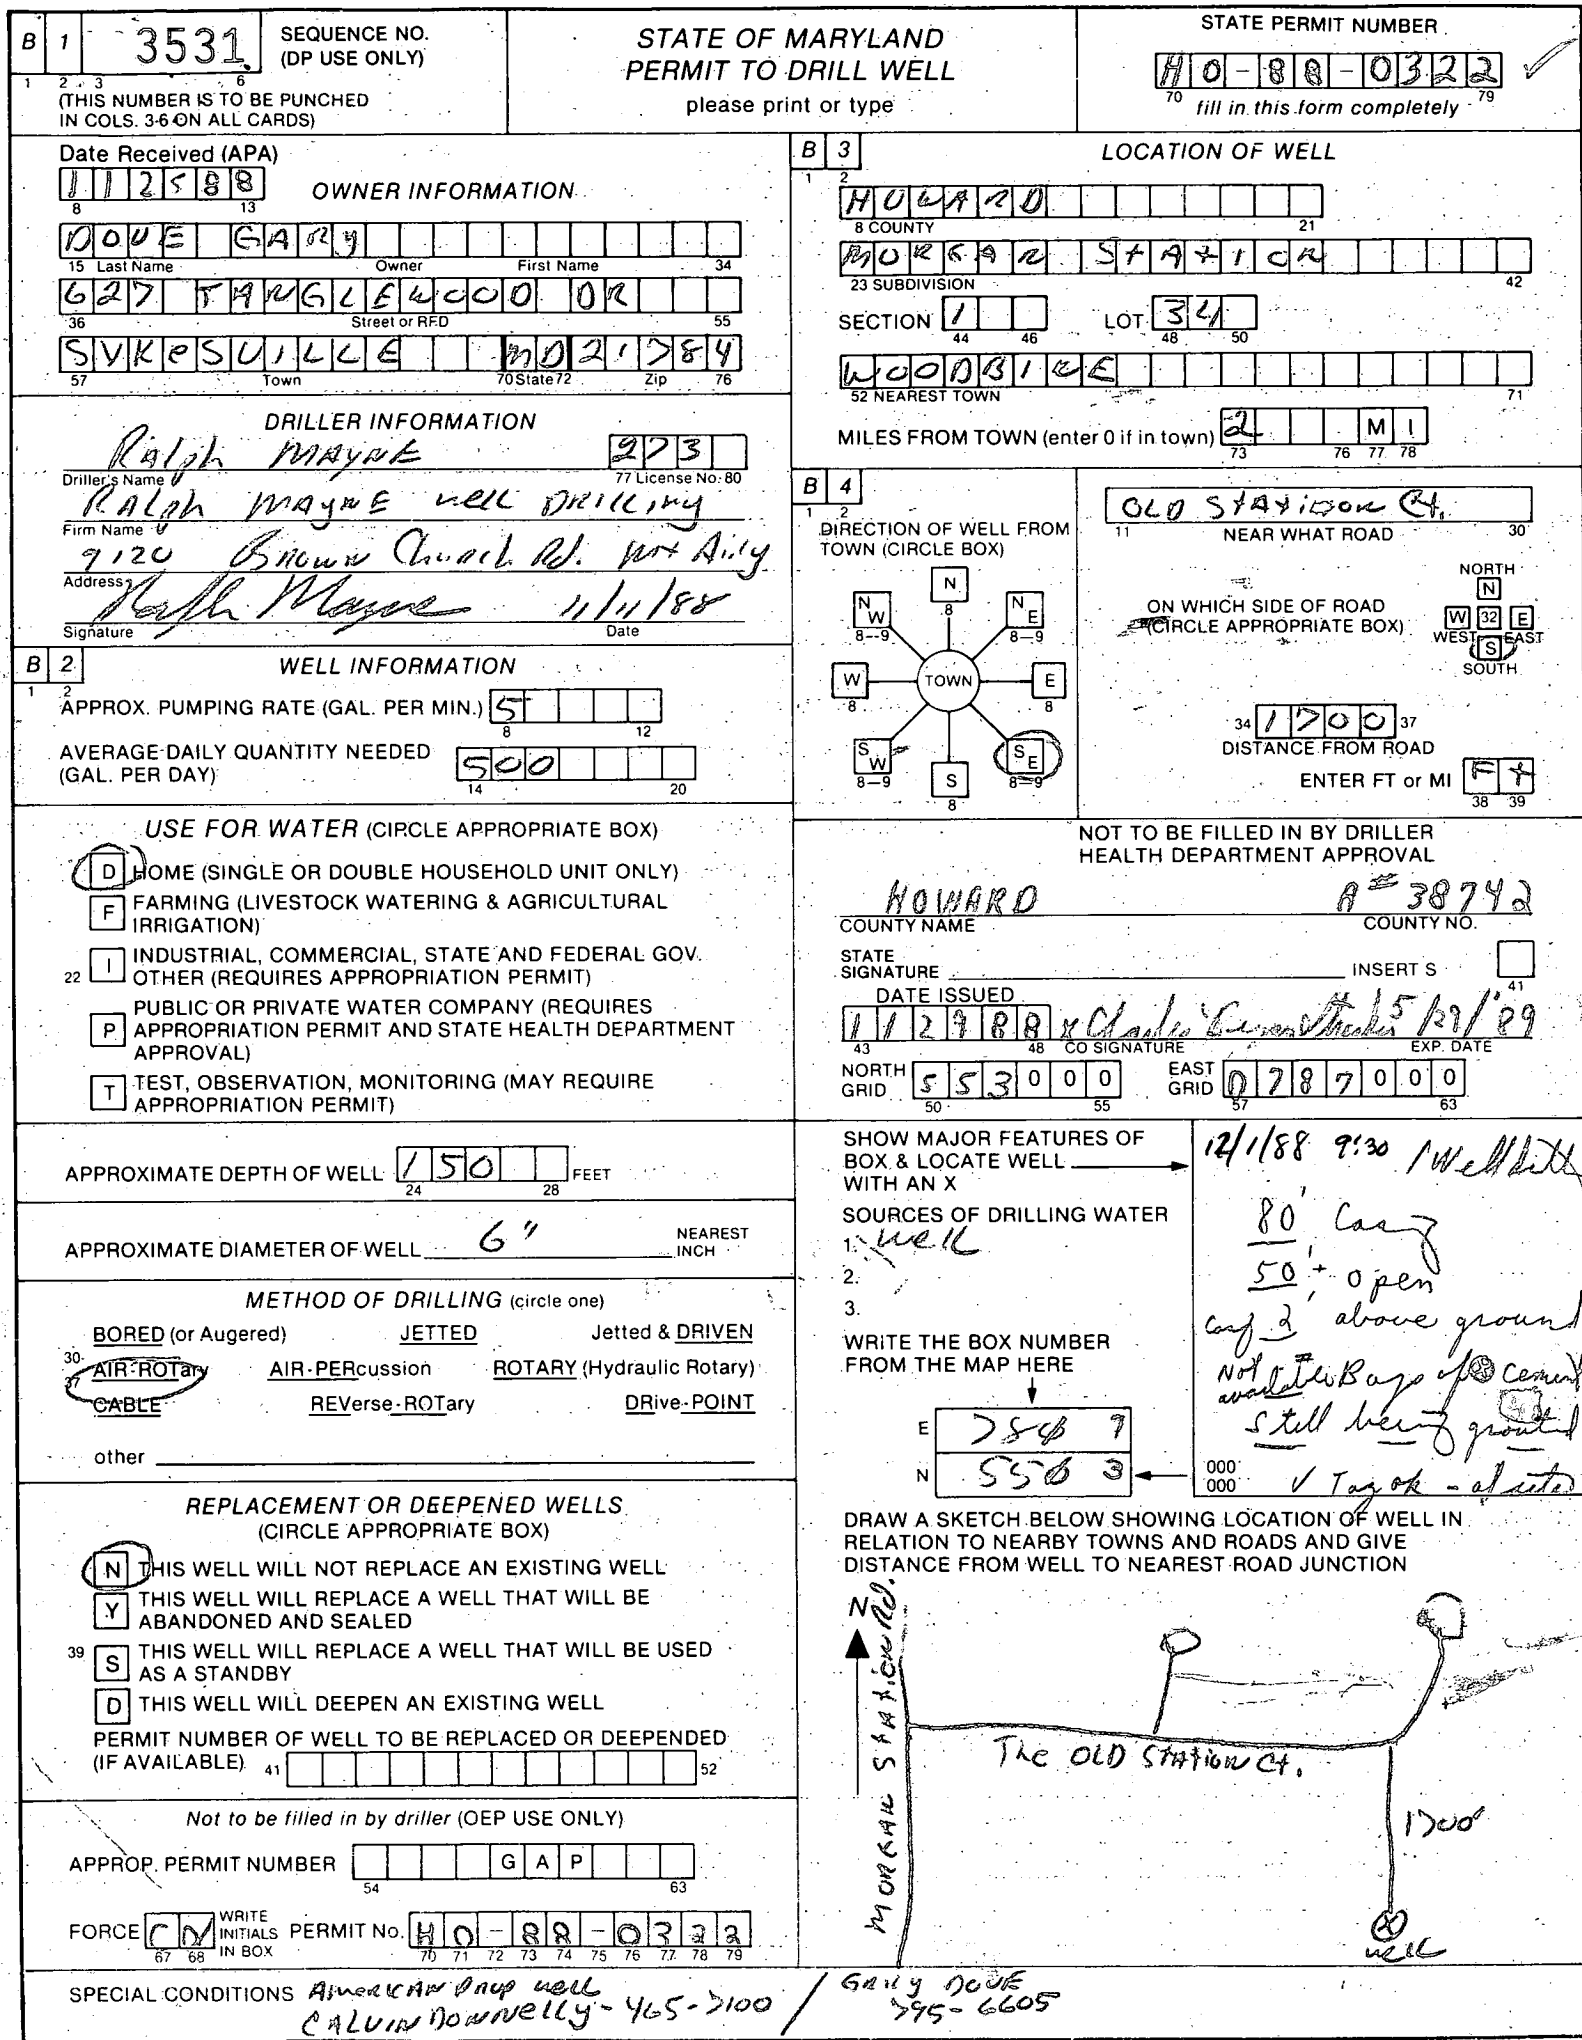 B 1 3531 SEQUENCE NO. (DP USE ONLY)
1 2 3 6
(THIS NUMBER IS TO BE PUNCHED
IN COLS. 3-6 ON ALL CARDS)
STATE OF MARYLAND
PERMIT TO DRILL WELL
please print or type
STATE PERMIT NUMBER
HO-88-0322
70 79
fill in this form completely
Date Received (APA)
112588
8 13
OWNER INFORMATION
DOVE GARY
15 Last Name Owner First Name 34
627 TANGLEWOOD DR
36 Street or RFD 55
SYKESVILLE MD 21784
57 Town 70 State 72 Zip 76
DRILLER INFORMATION
Ralph MAYNE 273
Driller's Name 77 License No. 80
RALph MAYNE well DRILLING
Firm Name
9120 Brown Church Rd. Mt Airy
Address
Ralph Mayne 11/11/88
Signature Date
B 2 WELL INFORMATION
1 2
APPROX. PUMPING RATE (GAL. PER MIN.) 5
8 12
AVERAGE DAILY QUANTITY NEEDED
(GAL. PER DAY) 500
14 20
USE FOR WATER (CIRCLE APPROPRIATE BOX)
D HOME (SINGLE OR DOUBLE HOUSEHOLD UNIT ONLY)
F FARMING (LIVESTOCK WATERING & AGRICULTURAL
IRRIGATION)
22 I INDUSTRIAL, COMMERCIAL, STATE AND FEDERAL GOV.
OTHER (REQUIRES APPROPRIATION PERMIT)
P PUBLIC OR PRIVATE WATER COMPANY (REQUIRES
APPROPRIATION PERMIT AND STATE HEALTH DEPARTMENT
APPROVAL)
T TEST, OBSERVATION, MONITORING (MAY REQUIRE
APPROPRIATION PERMIT)
APPROXIMATE DEPTH OF WELL 150 FEET
24 28
APPROXIMATE DIAMETER OF WELL 6" NEAREST
INCH
METHOD OF DRILLING (circle one)
BORED (or Augered) JETTED Jetted & DRIVEN
30- AIR-ROTary AIR-PERcussion ROTARY (Hydraulic Rotary)
37 CABLE REVerse-ROTary DRive-POINT
other
REPLACEMENT OR DEEPENED WELLS
(CIRCLE APPROPRIATE BOX)
N THIS WELL WILL NOT REPLACE AN EXISTING WELL
Y THIS WELL WILL REPLACE A WELL THAT WILL BE
ABANDONED AND SEALED
39 S THIS WELL WILL REPLACE A WELL THAT WILL BE USED
AS A STANDBY
D THIS WELL WILL DEEPEN AN EXISTING WELL
PERMIT NUMBER OF WELL TO BE REPLACED OR DEEPENDED
(IF AVAILABLE) 41 52
Not to be filled in by driller (OEP USE ONLY)
APPROP. PERMIT NUMBER G A P
54 63
FORCE WRITE INITIALS IN BOX PERMIT No. HO-88-0322
67 68 70 71 72 73 74 75 76 77 78 79
B 3 LOCATION OF WELL
1 2
HOWARD
8 COUNTY 21
MORGAN STATION
23 SUBDIVISION 42
SECTION 1 LOT 34
44 46 48 50
WOODBINE
52 NEAREST TOWN 71
MILES FROM TOWN (enter 0 if in town) 2 M I
73 76 77 78
B 4
1 2
DIRECTION OF WELL FROM
TOWN (CIRCLE BOX)
N
8
NW NE
8-9 8-9
W TOWN E
8 8
SW SE
8-9 8-9
S
8
OLD STATION Ct.
11 NEAR WHAT ROAD 30
ON WHICH SIDE OF ROAD
(CIRCLE APPROPRIATE BOX)
NORTH
N
W 32 E
WEST EAST
S
SOUTH
34 1700 37
DISTANCE FROM ROAD
ENTER FT or MI Ft
38 39
NOT TO BE FILLED IN BY DRILLER
HEALTH DEPARTMENT APPROVAL
HOWARD A# 38742
COUNTY NAME COUNTY NO.
STATE
SIGNATURE INSERT S
41
DATE ISSUED
112988 5/29/89
43 48 CO SIGNATURE EXP. DATE
NORTH GRID 553000 EAST GRID 0787000
50 55 57 63
SHOW MAJOR FEATURES OF
BOX & LOCATE WELL
WITH AN X
SOURCES OF DRILLING WATER
1. Well
2.
3.
WRITE THE BOX NUMBER
FROM THE MAP HERE
E 780 7
N 550 3
000
000
12/1/88 9:30
80' Casing
50'+ open
2' above ground
Not available Bags of cement
still being grouted
✓ Tag ok
DRAW A SKETCH BELOW SHOWING LOCATION OF WELL IN
RELATION TO NEARBY TOWNS AND ROADS AND GIVE
DISTANCE FROM WELL TO NEAREST ROAD JUNCTION
N
MORGAN STATION Rd.
The OLD STATION Ct.
1700'
well
SPECIAL CONDITIONS AMERICAN Prop well / GARY DOVE
CALVIN DONNELLY - 465-7100 795-6605